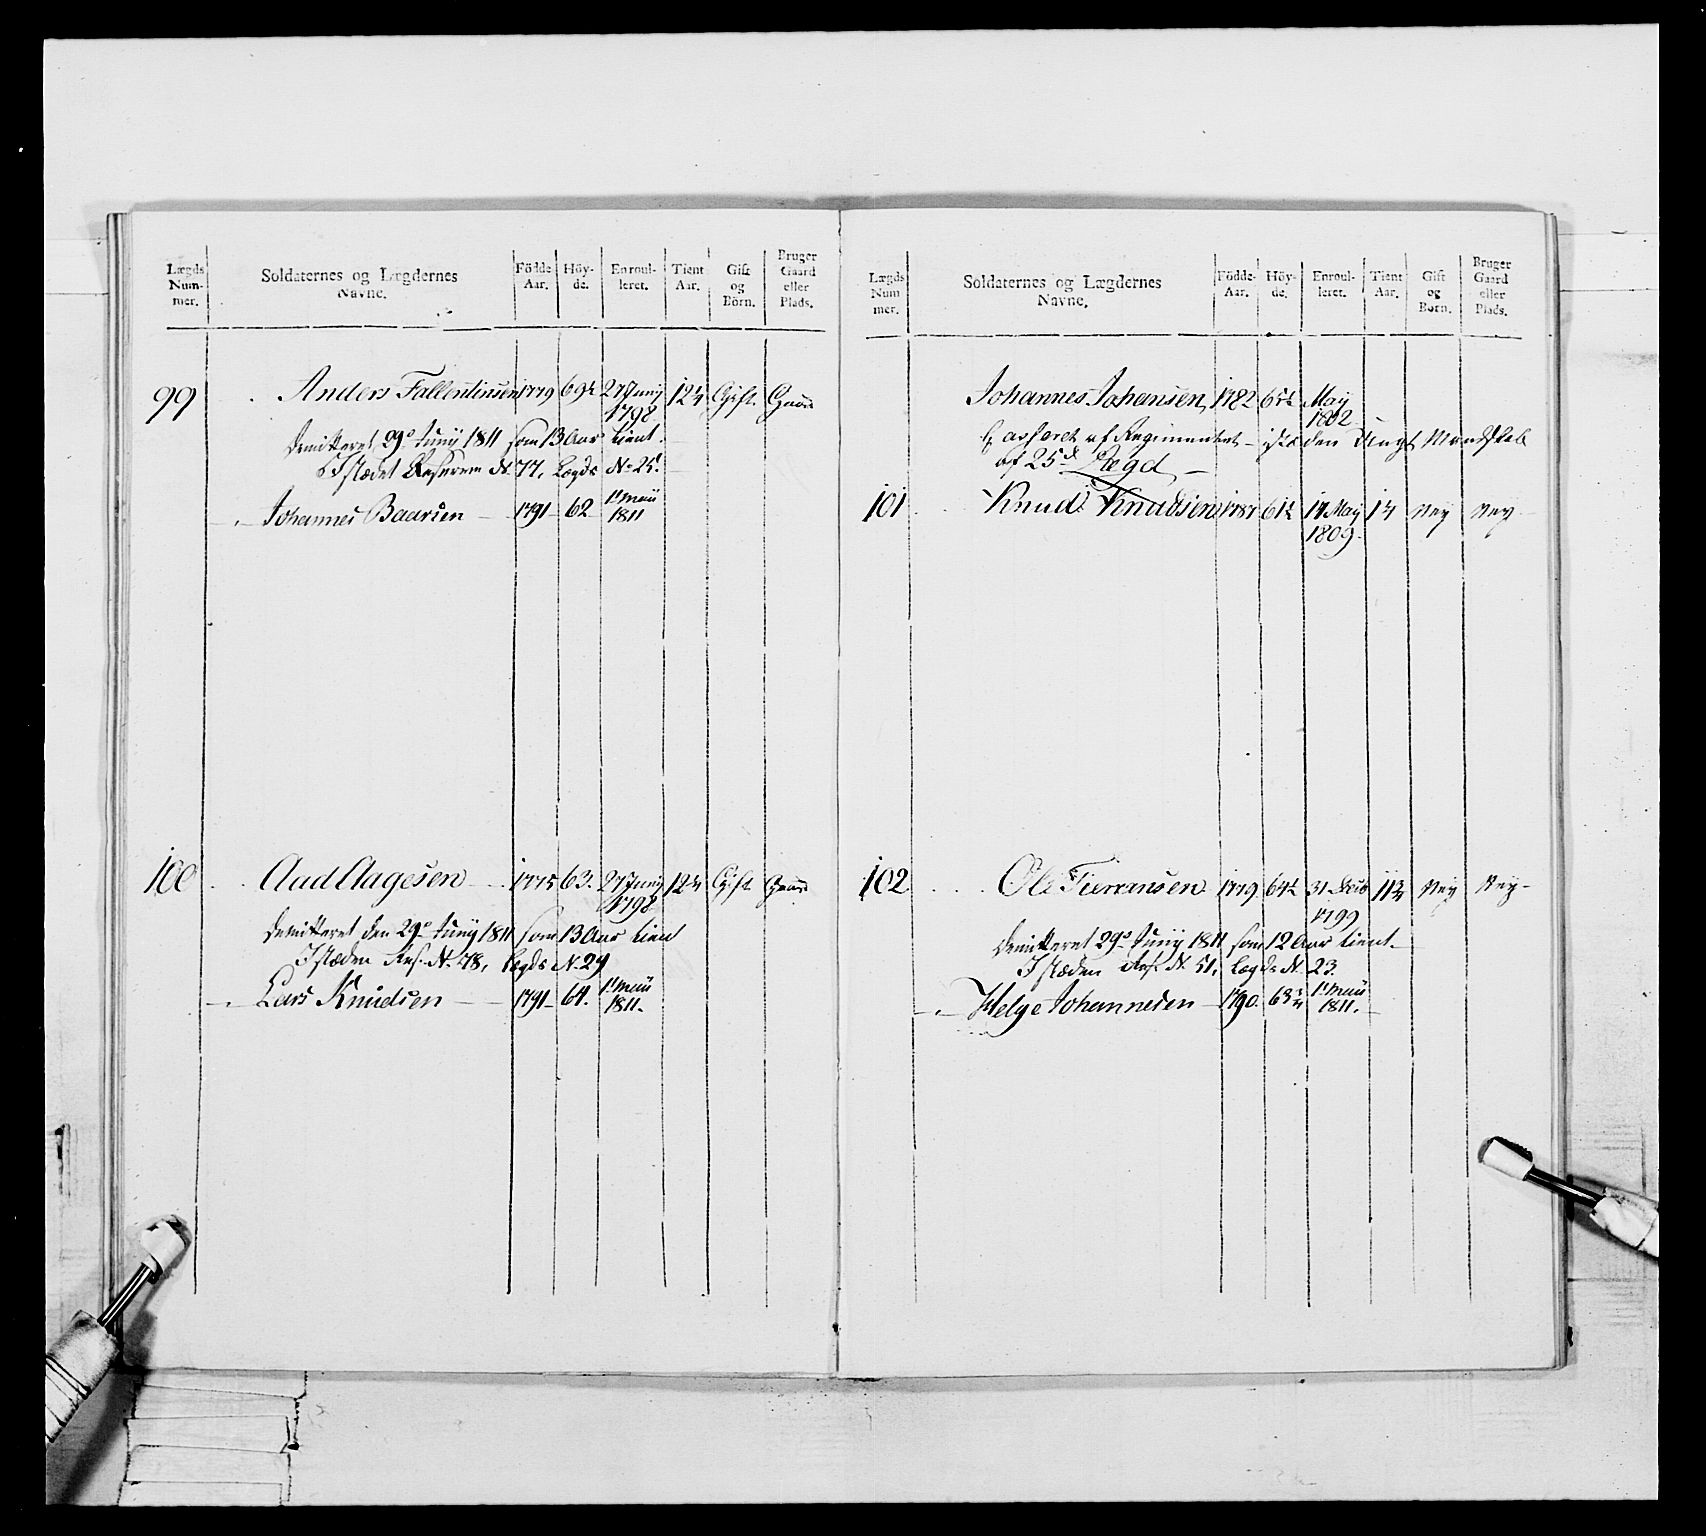 Lægds Num- mer.
Soldaternes og Lægdernes Navne.
Födde Aar.
Höy- de.
Enroul- leret.
Tient Aar.
Gift og Börn.
Bruger Gaard eller Plads.
99 Anders Fallentinsen 1779 69½ 27 Junij 1798 12¾ Gift. Gaard
Demitteret 29de Junij 1811 som 13 Aar tient.
I stædet Reserven No 77, Lægds No 25.
Johannes Baarsen 1791 62 1te Maii 1811
100 Aad Aagesen 1775 63. 27 Junij 1798 12¾ Gift Gaard
Demitteret den 29de Junij 1811 som 13 Aar tient
I stæden Res. No. 78, Lægds No 29
Lars Knudsen 1791 64. 1te Maii 1811.
Lægds Num mer.
Soldaternes og Lægdernes Navne.
Födde- Aar.
Höy- de.
Enroul- leret.
Tient Aar.
Gift og Börn.
Bruger Gaard eller Plads.
Johannes Johansen 1782 65½ May 1802
af Regimentet den Mandskab
af 25de Lægd
101 Knud Knudsen 1787 61½ 17 May 1809. 1¾ Ney Ney
102 Ole 1779 64½ 31 1799 11¾ Ney Ney
Demitteret 29de Junij 1811 som 12 Aar tient.
I stæden Res. No. 51, Lægds No. 23.
Helge Johannesen 1790. 63¾ 1te Maii 1811.